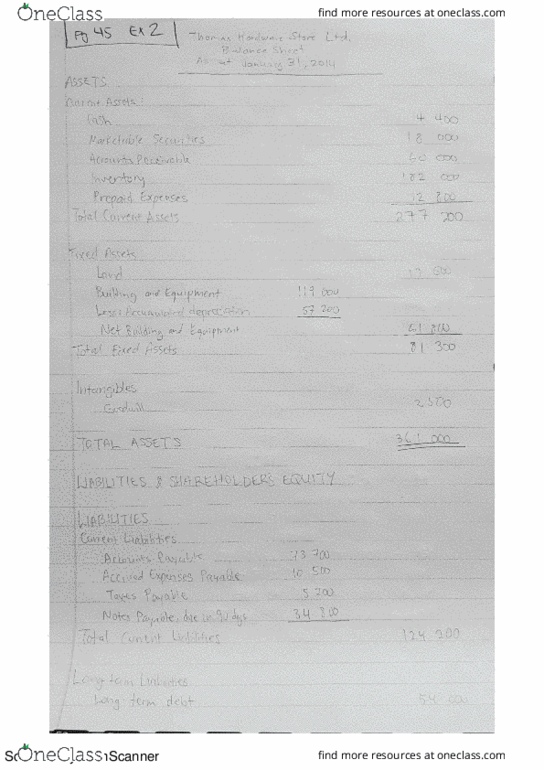 OneClass
find more resources at oneclass.com
Pg 45 Ex 2
Thomas Hardware Store Ltd.
Balance Sheet
As at January 31, 2014
ASSETS
Current Assets:
Cash 4 400
Marketable Securities 18 000
Accounts Receivable 60 000
Inventory 182 000
Prepaid Expenses 12 800
Total Current Assets 277 200
Fixed Assets
Land
Building and Equipment 119 000
Less: Accumulated depreciation 57 200
Net Building and Equipment 61 800
Total Fixed Assets 81 300
Intangibles
Goodwill 2 500
TOTAL ASSETS 361 000
LIABILITIES & SHAREHOLDERS EQUITY
LIABILITIES
Current Liabilities
Accounts Payable 73 700
Accrued Expenses Payable 10 500
Taxes Payable 5 200
Notes Payable, due in 90 dys 34 800
Total Current Liabilities 124 200
Long term Liabilities
Long term debt
OneClass Scanner
find more resources at oneclass.com